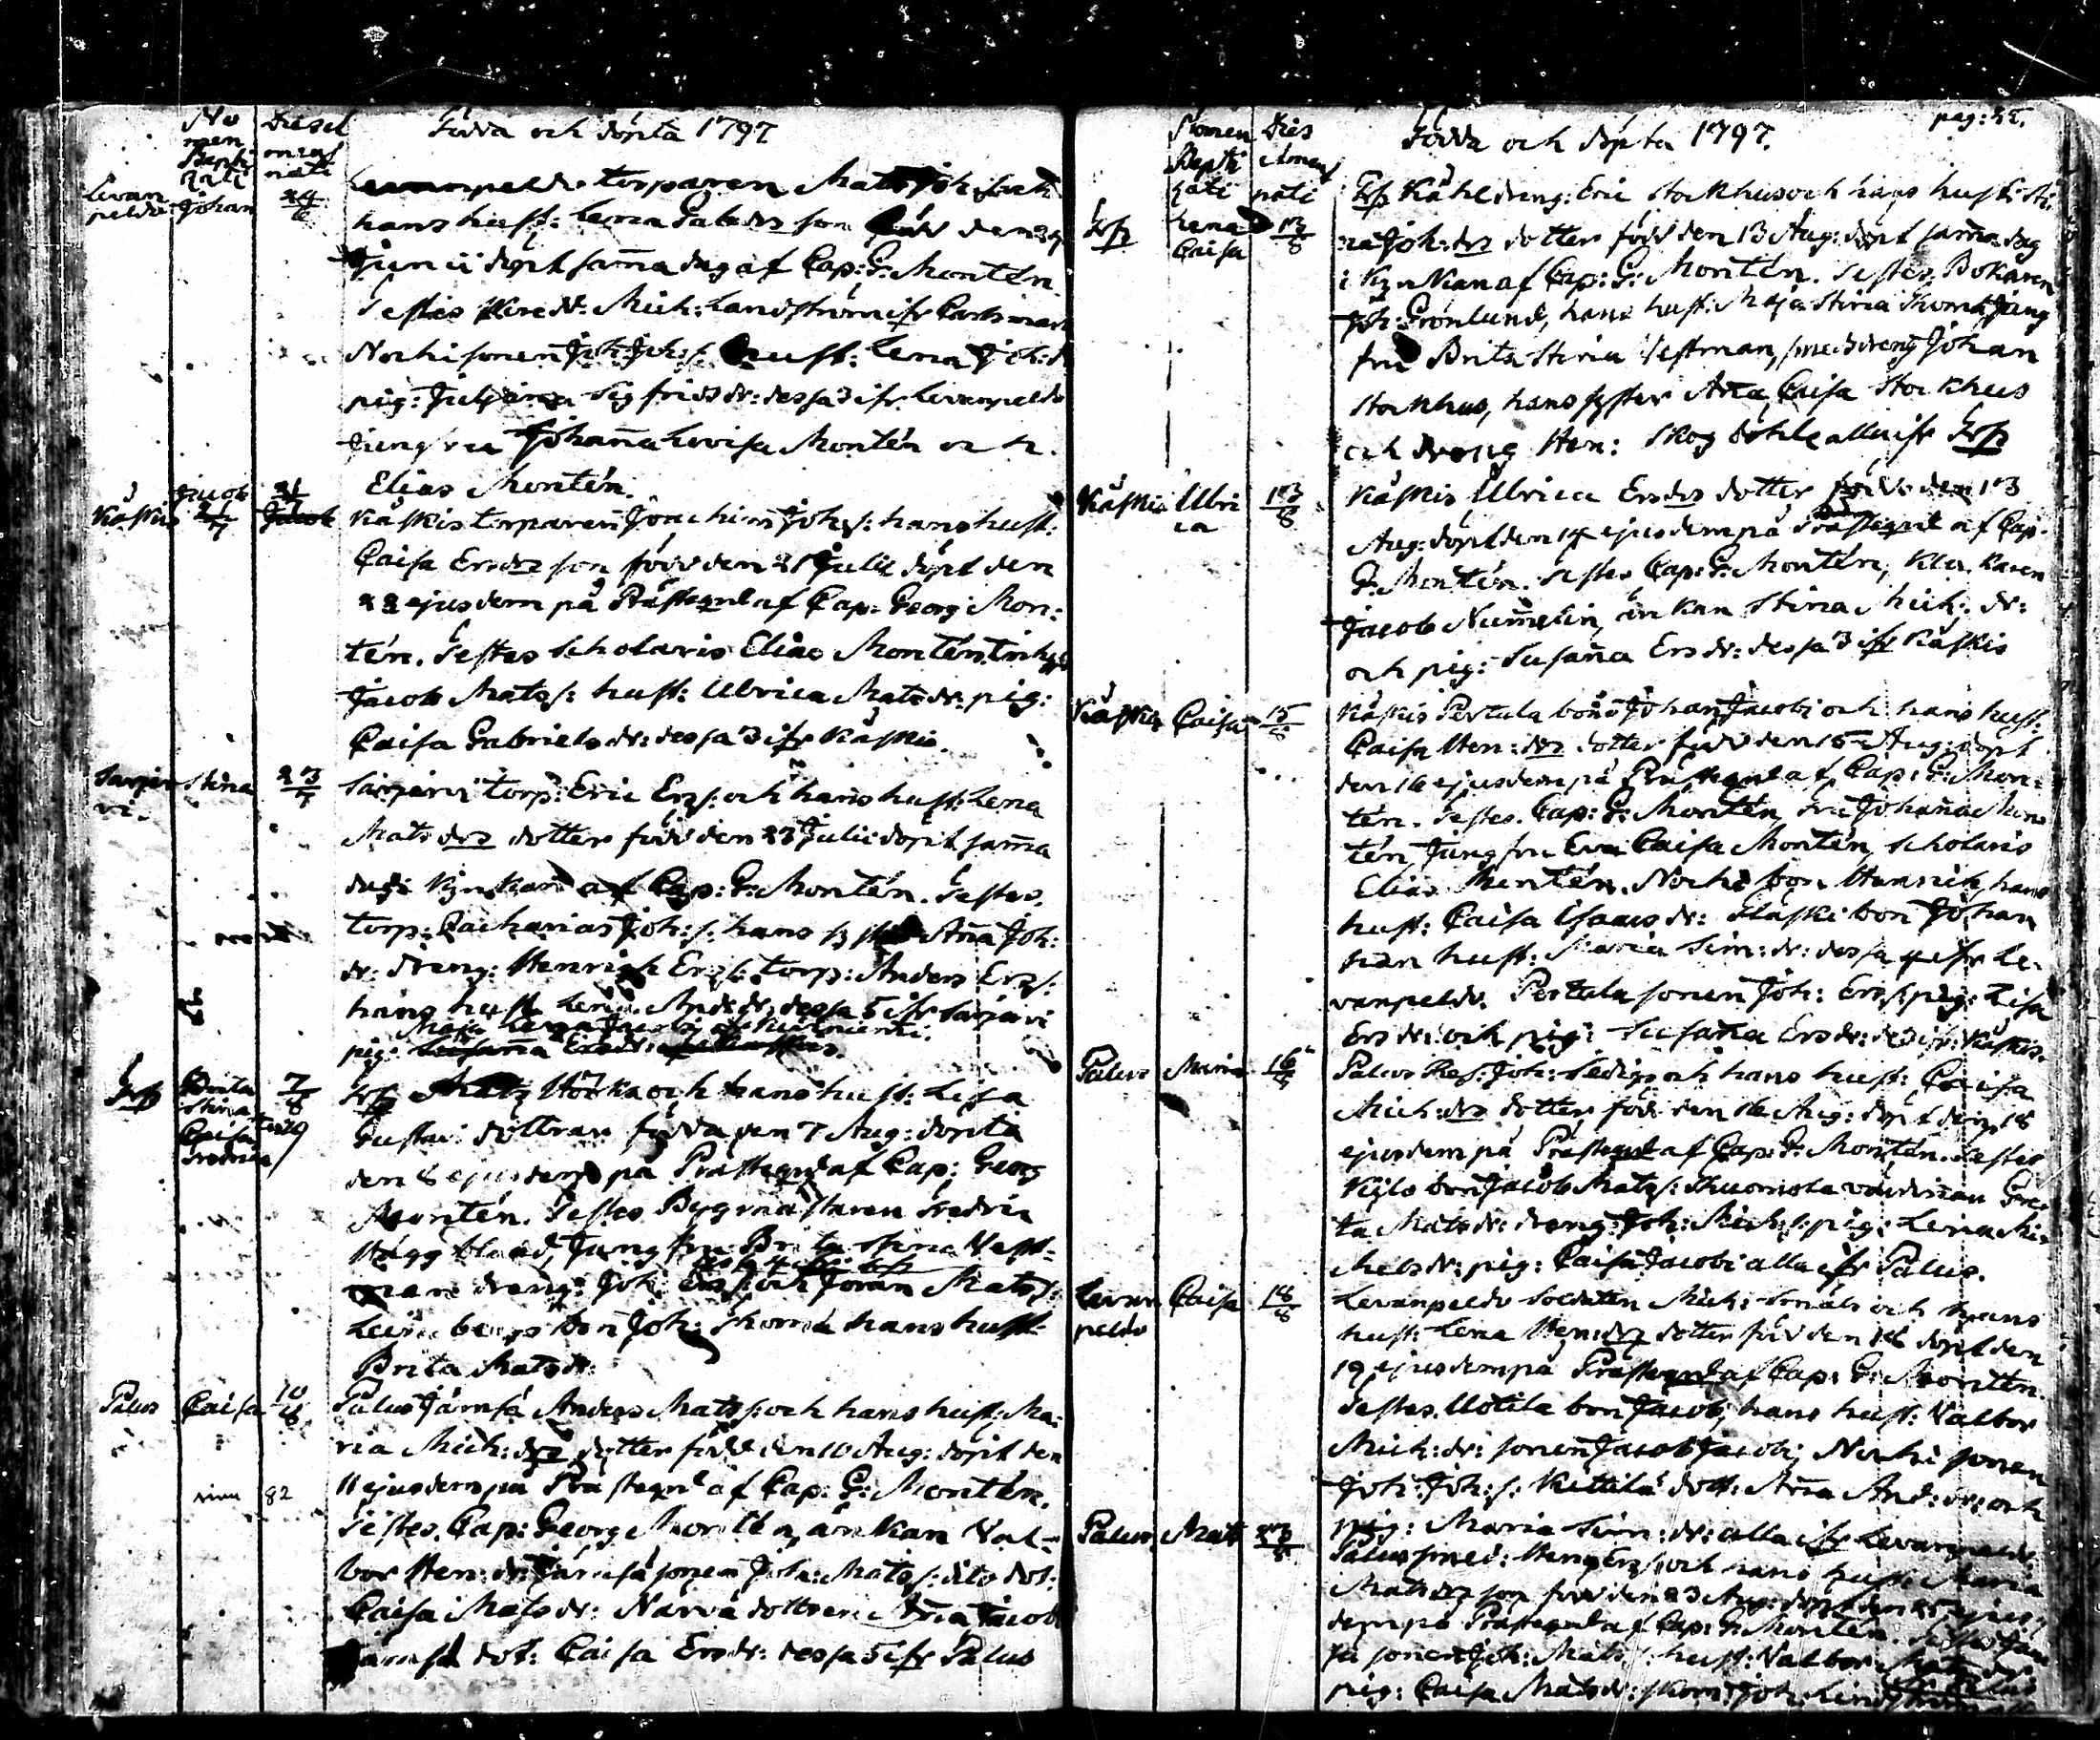 Födda och döpta 1797
No
men
Bapti
zati
Dies et
mens
nati
Levan
peldo Johan 24/6
Levanpeldo torparen Mats Joh:
hans hust: Lena Gabrdrs son född den 24
Junii döpt samma dag af Cap: G: Montén.
Testes Mich: Landström ifr
Nochi sonen Joh: Joh:s: hust: Lena Joh: d
pig: Juliana Sigfridsdr: dessa 3 ifr Levanpeldo
Jungfru Johanna Lovisa Montén och
Elias Montén.
Kåskis Jacob 21/7
Kåskis torparen Joachim Joh:s: hans hust:
Caisa Ersdrs son född den 21 Julii döpt den
22 ejusdem på Prästegrd af Cap: Georg Mon:
tén. Testes Scholaris Elias Montén
Jacob Mats s: hust: Ulrica Matsdr: pig:
Caisa Gabrielsdr: dessa 3 ifr Kåskis.
Sarjär
vi. Stina 23/7
Sarjärvi torp: Eric Ers s: och hans hust: Lena
Matsdrs dotter född den 23 Julii döpt samma
dag i Kyrkan af Cap: G: Montén. Testes.
torp: Zacharias Joh: s: hans Anna Joh:
dr: dreng: Henrich Ers s: torp: Anders Ers s:
hans hust Lena Andsdr: dessa 5 ifr Sarjärvi
Maja Lena
pig: Susanna Ersdr: ifr Kåskis.
Brita
Stina
Caisa
Fredrica 7/8
och hans hust: Lisa
Gustavi döttrar födda den 7 Aug: döpta
den 8 ejusdem på Prästegrd af Cap: Georg
Montén. Testes Bygmästaren Fredric
Häggblad, Jungfru Brita Stina Vest-
man dreng: Joh: Ers s: och Joran Mats s:
bon Joh: hans hust
Brita Matsdr:
Palus Caisa 10/8
Palus Järnfä Anders Mats s: och hans hust: Ma:
ria Mich: drs dotter född den 10 Aug: döpt den
11 ejusdem på Prästegrd af Cap: G: Montén.
Testes. Cap: Georg Montén, änkan Val-
bor Hen: dr: Järnfä sonen Joh: Mats s: dito dot:
Caisa Matsdr: Narva dottren Anna Jacob
Järnfä dot: Caisa Ersdr: dessa 5 ifr Palus
82
pag: 52.
Födda och döpta 1797.
Nomen
Bapti
zati
Dies
et mens
nati
Lena
Caisa 13/8
Kåhldreng: Eric Stockhus och hans hust: Sti:
na Joh: drs dotter född den 13 Aug: döpt samma dag
i Kyrkan af Cap: G: Montén. Testes. Bokaren
Joh: Grönlund, hans hust: Maja Stina Jung
fru Brita Stina Vestman, smedsdreng Johan
Stockhus, hans syster Anna Caisa Stockhus
och dreng Hen: Skog alla ifr
Kåskis Ulri
ca 13/8
Kåskis Ulrica Ersdrs dotter född den 13
Aug: döpt den 14 ejusdem på Prästegrd af Cap:
G: Montén. Testes Cap: G: Montén, Klockaren
Jacob Numelin, änkan Stina Mich: dr:
och pig: Susanna Ersdr: dessa 3 ifr Kåskis
Kåskis Caisa 15/8
Kåskis Pertula bon Johan Jacobi och hans hust:
Caisa Hen: drs dotter född den 15 Aug: döpt
den 16 ejusdem på Prästegrd af Cap: G: Mon:
tén. Testes. Cap: G: Montén, fru Johanna Mon
tén, Jungfru Eva Caisa Montén, Scholaris
Elias Montén. Nochi bon Henrich, hans
hust: Caisa Isaacsdr: bon Johan
han hust: Maria Sim: dr: dessa 4 ifr Le-
vanpeldo. Pertula sonen Joh: Ers s: pig: Lisa
Ersdr: och pig: Susanna Ersdr: ifr: Kåskis.
Palus Maria 16/8
Palus Joh: och hans hust: Caisa
Mich: drs dotter född den 16 Aug: döpt den 18
ejusdem på Prästegrd af Cap: G: Montén. Testes
bon Jacob Mats s: Gre:
ta Matsdr: dreng: Joh: Mich: s: pig: Lena Mi-
chelsdr: pig: Caisa Jacobi alla ifr Palus.
Levan
peldo Caisa 18/8
Levanpeldo Soldaten Mich: och hans
hust: Lena Hen: drs dotter född den 18 döpt den
19 ejusdem på Prästegrd af Cap: G: Montén.
Testes. Uotila bon Jacob, hans hust: Valbor
Mich: dr: sonen Jacob Jacobi, Nochi sonen
Joh: Joh: s: Kittilä dott: Anna And: dr: och
pig: Maria Sim: dr: alla ifr Levanpeldo.
Palus Mats 23/8
Palus smed: Heng Ers s: och hans hust: Maria
Matsdrs son född den 23 Aug: döpt den 25 ejus:
dem på Prästegrd af Cap: G: Montén. Testes Järn
fä sonen Joh: Mats s: hust: Valbor Matsdr:
pig: Caisa Matsdr: Joh: